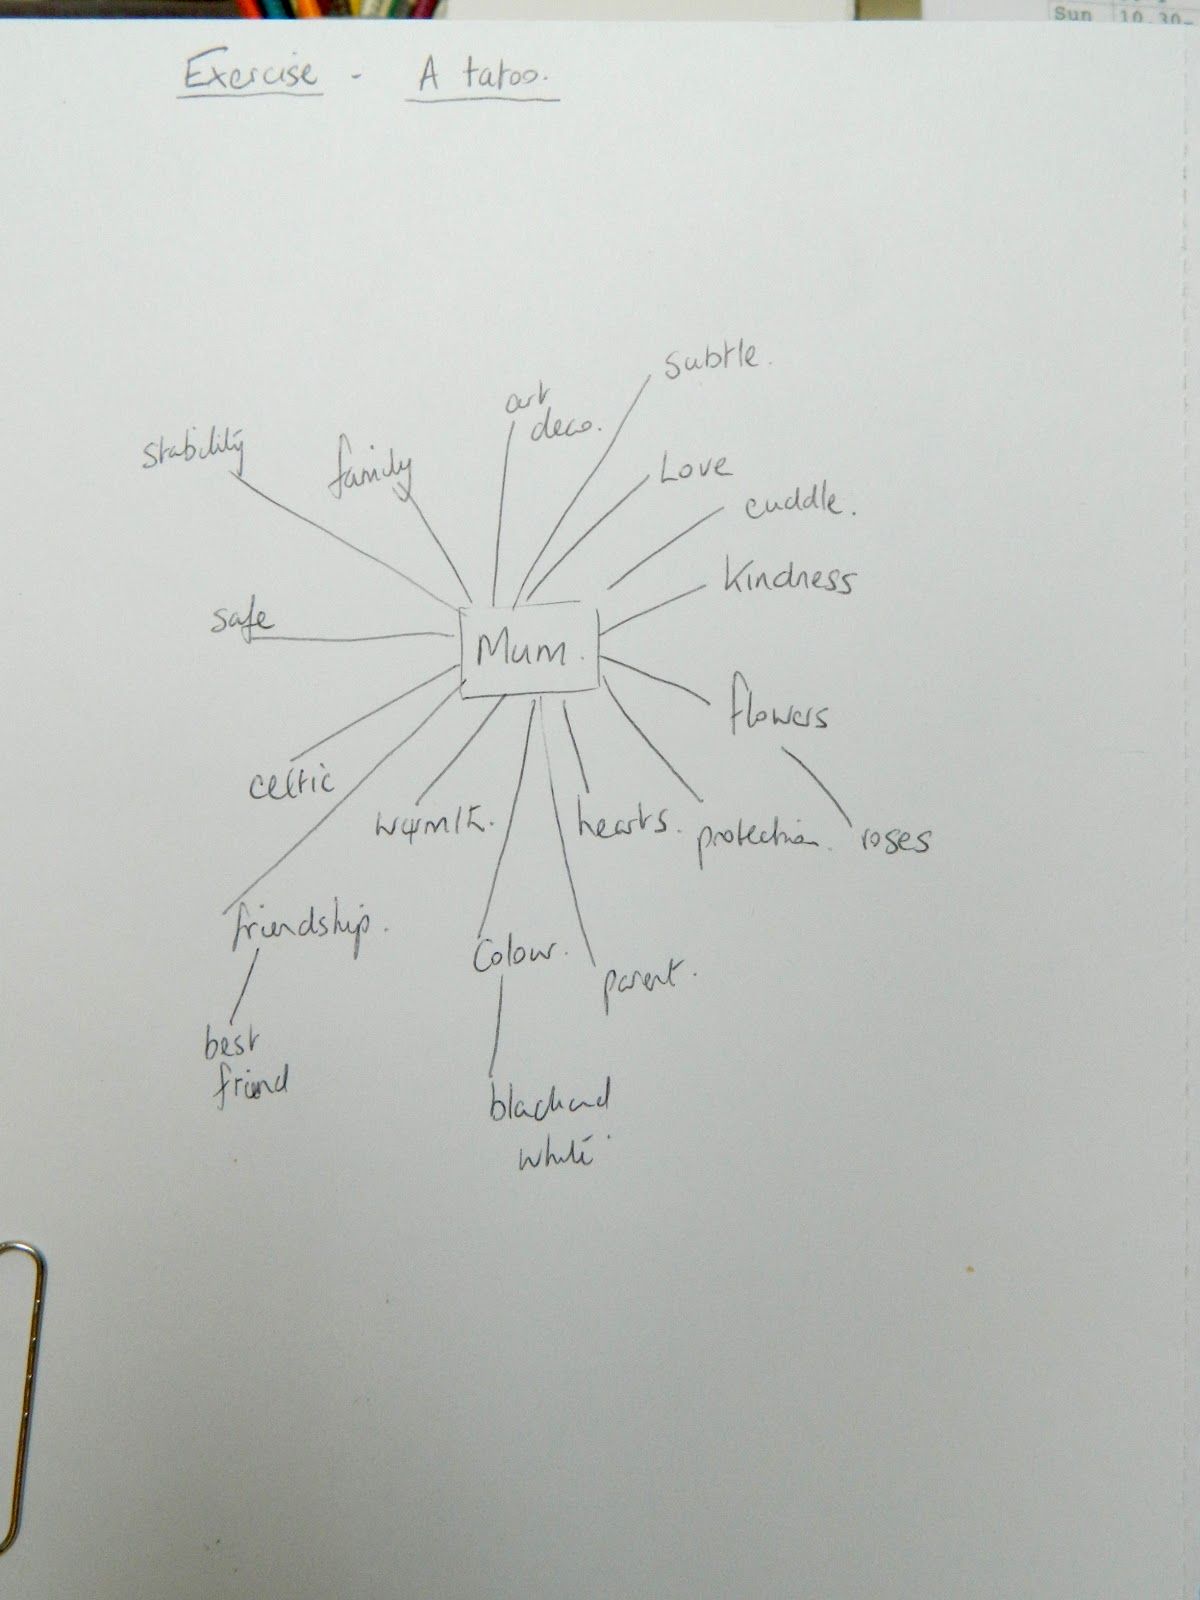 Sun 10.30-
Exercise - A tatoo.
subtle.
art
deco.
stability
family
Love
cuddle.
Kindness
safe
Mum.
flowers
celtic
warmth.
hearts.
protection.
roses
friendship.
Colour.
parent.
best
friend
black and
white.